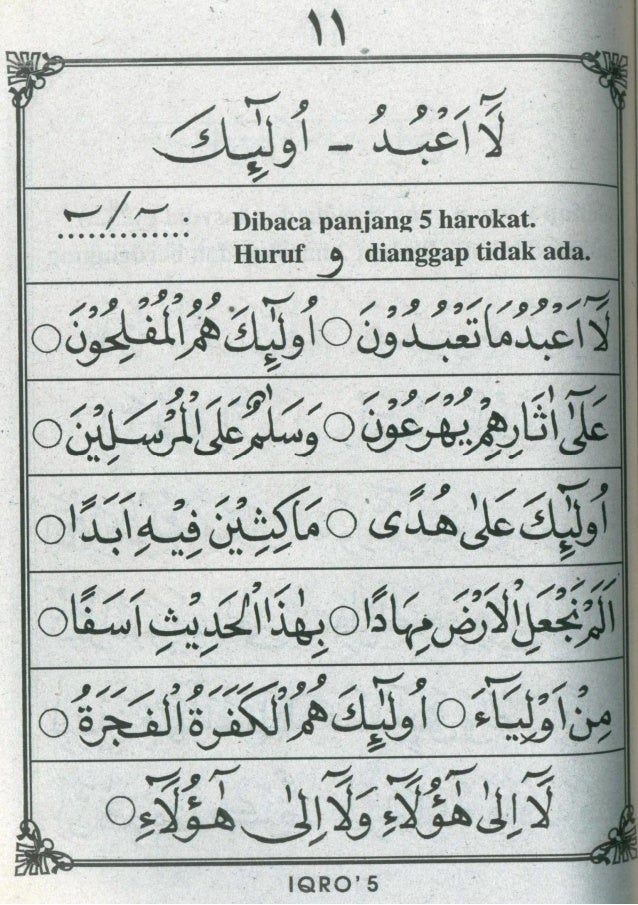 ١١
لَآ اَعْبُدُ - اُولٰٓئِكَ
Dibaca panjang 5 harokat.
Huruf و dianggap tidak ada.
لَآ اَعْبُدُ مَا تَعْبُدُوْنَ ○ اُولٰٓئِكَ هُمُ الْمُفْلِحُوْنَ ○
عَلٰٓى اٰثَارِهِمْ يُهْرَعُوْنَ ○ وَسَلٰمٌ عَلَى الْمُرْسَلِيْنَ ○
اُولٰٓئِكَ عَلٰى هُدًى ○ مَاكِثِيْنَ فِيْهِ اَبَدًا ○
اَلَمْ نَجْعَلِ الْاَرْضَ مِهَادًا ○ بِهٰذَا الْحَدِيْثِ اَسَفًا ○
مِنْ اَوْلِيَآءَ ○ اُولٰٓئِكَ هُمُ الْكَفَرَةُ الْفَجَرَةُ ○
لَآ اِلٰى هٰٓؤُلَآءِ وَلَآ اِلٰى هٰٓؤُلَآءِ ○
IQRO' 5